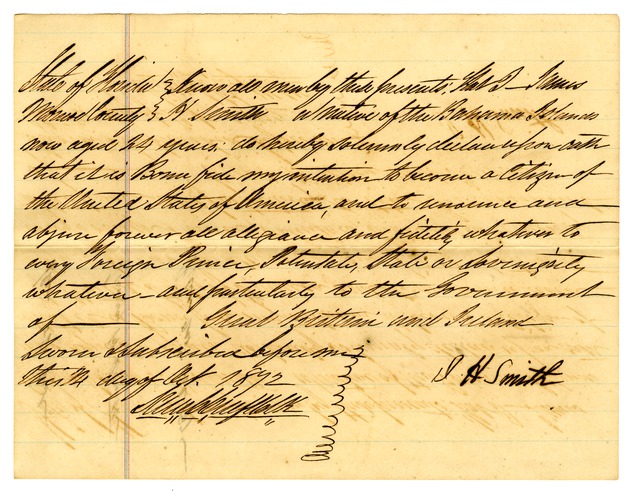 State of Florida } Know all men by these presents; that I James
Monroe County } H Smith a native of the Bahama Islands
now aged 24 years: do hereby solemnly declare upon oath
that it is Bona fide my intention to become a Citizen of
the United States of America, and to renounce and
abjure forever all allegiance and fidelity whatever to
every Foreign Prince, Potentate, State or Sovereignty
whatever and particularly to the Government
of Great Brittain and Ireland
Sworn & Subscribed before me
this 14 day of 1872
J H Smith